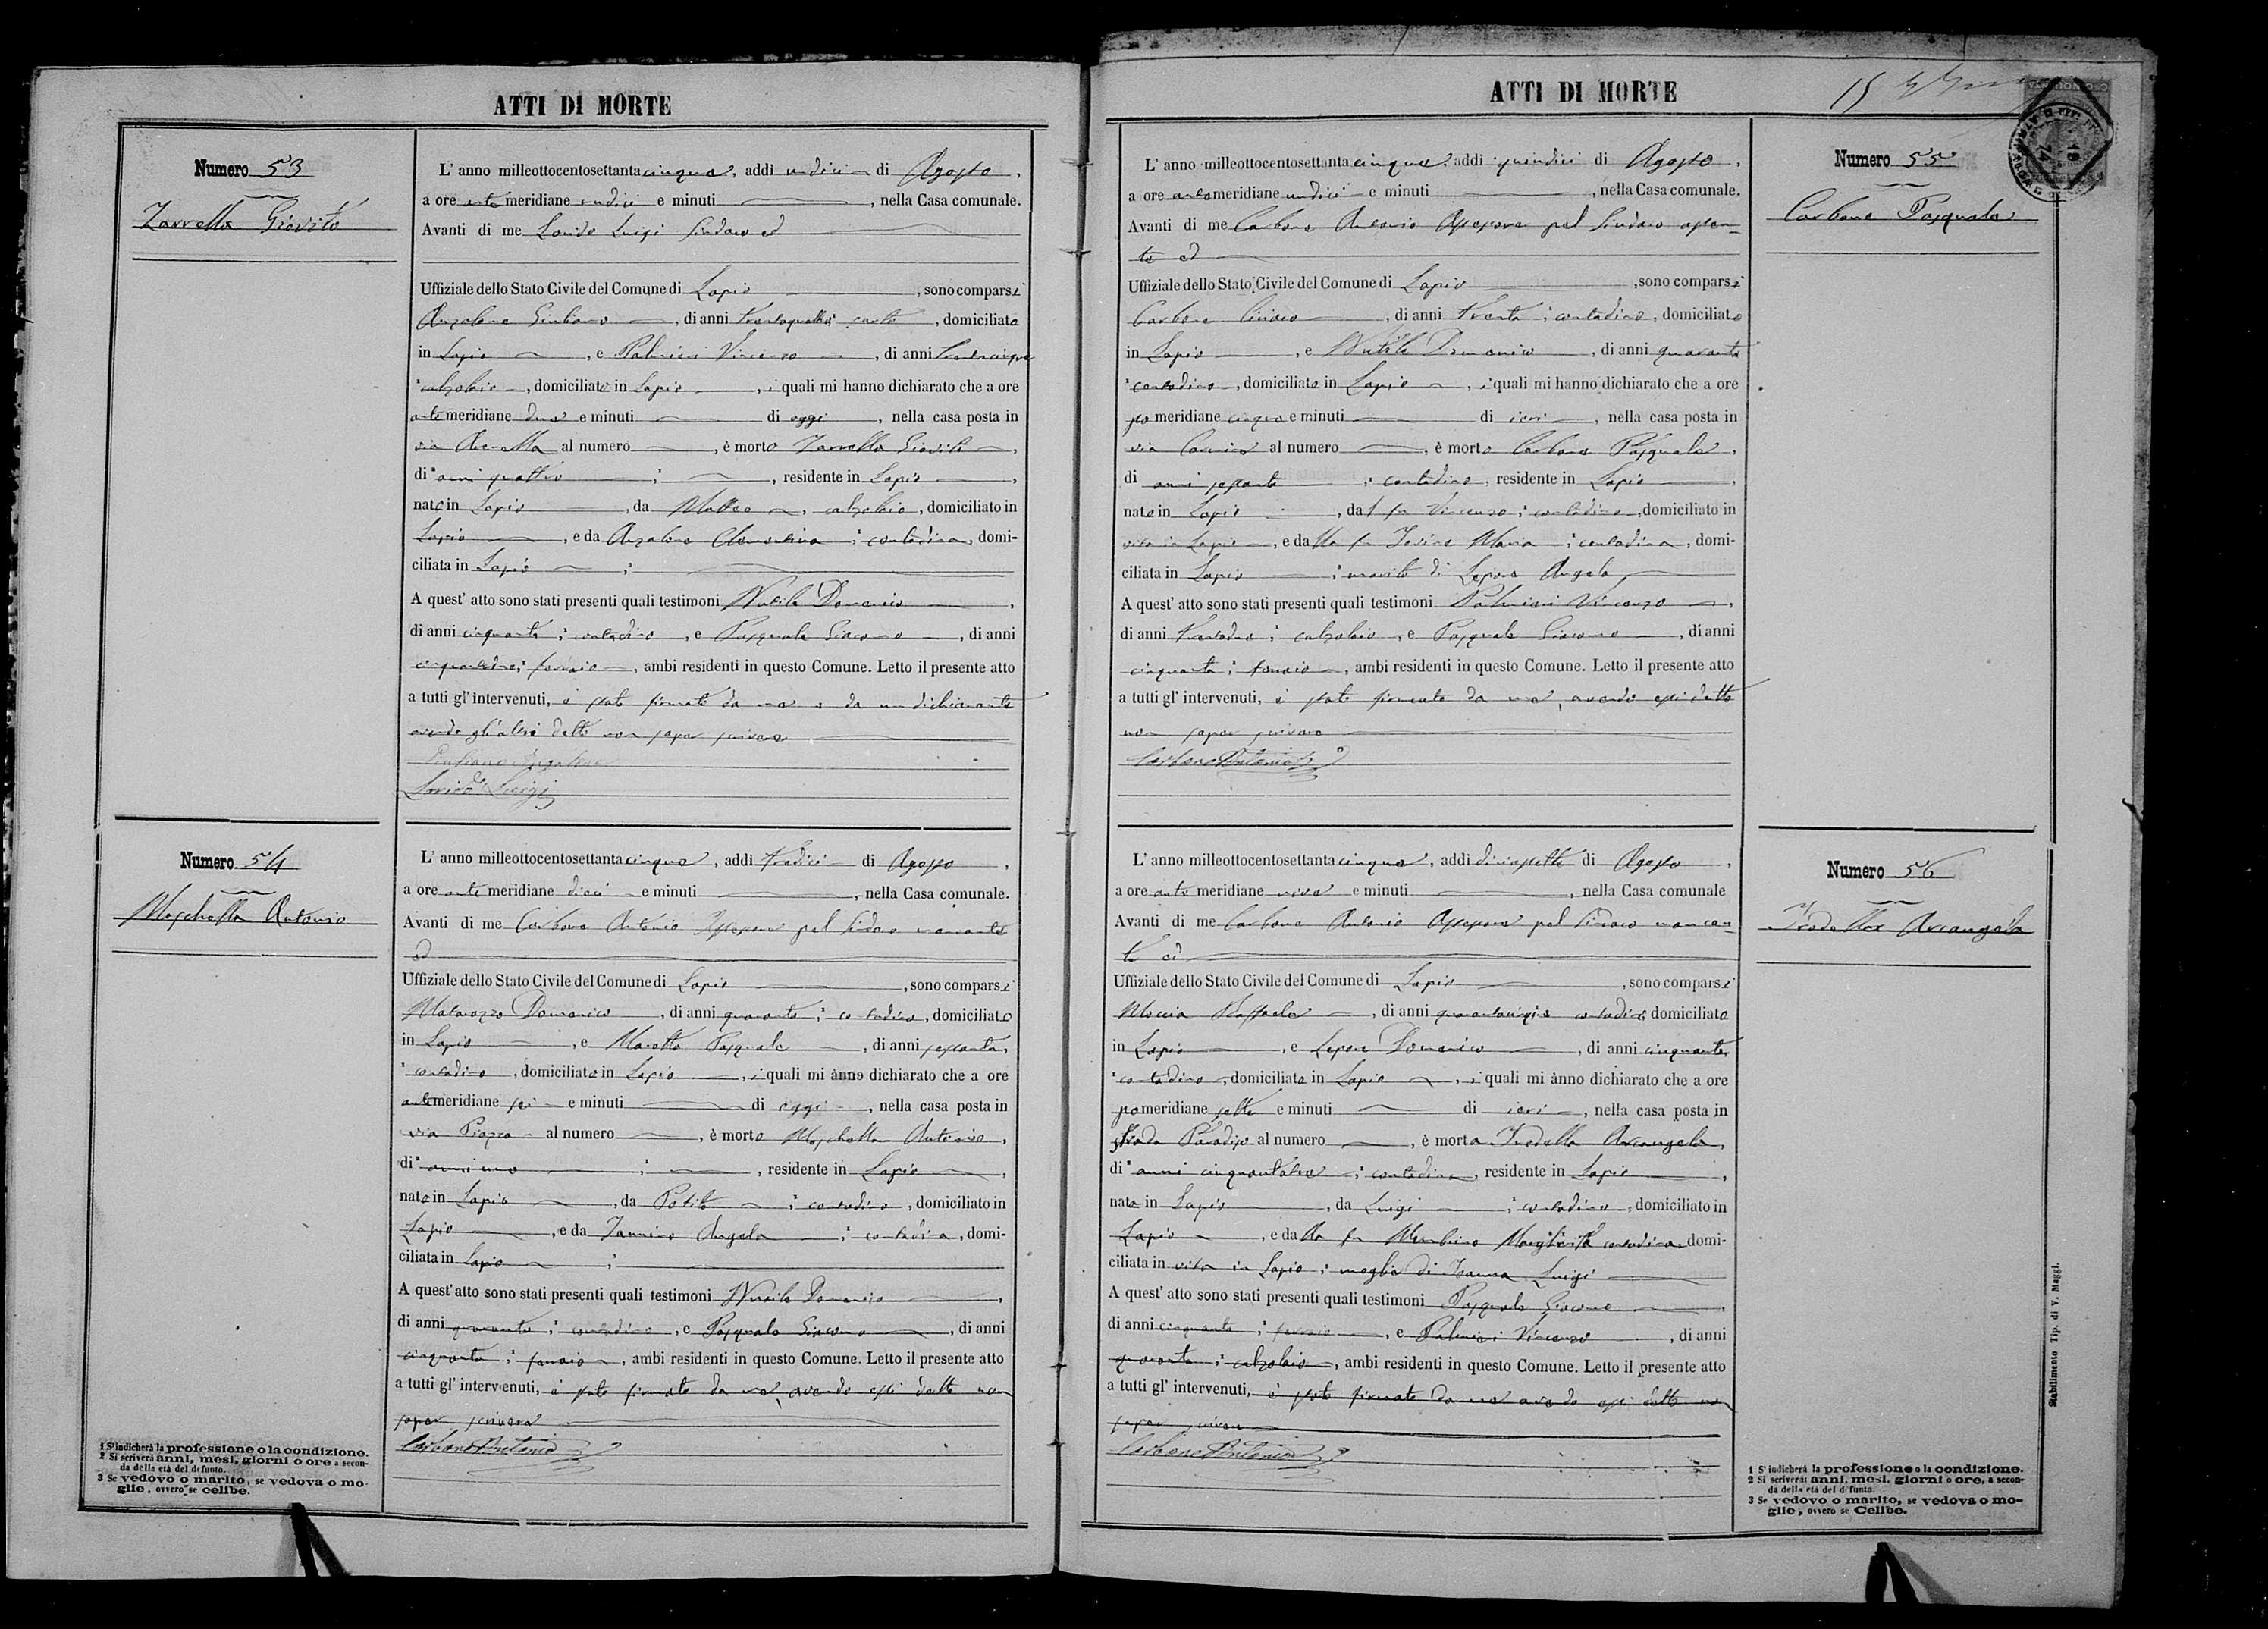 ATTI DI MORTE
Numero 53
Zarrella Giovito
L' anno milleottocentosettantacinque, addì undici di Agosto,
a ore antemeridiane undici e minuti, nella Casa comunale.
Avanti di me Luigi Sindaco ed
Uffiziale dello Stato Civile del Comune di Lapio, sono comparsi
Anzalone, di anni trentaquattro; sarto, domiciliato
in Lapio, e Palmieri Vincenzo, di anni trentacinque
calzolaio, domiciliato in Lapio, i quali mi hanno dichiarato che a ore
antemeridiane due e minuti di oggi, nella casa posta in
via al numero, è morto Zarrella Giovito,
di anni quattro;, residente in Lapio,
nato in Lapio, da Matteo, calzolaio, domiciliato in
Lapio, e da Anzalone Clementina; contadina, domi-
ciliata in Lapio;
A quest' atto sono stati presenti quali testimoni Nutile Domenico,
di anni cinquanta; contadino, e Pasquale Giacomo, di anni
cinquantadue; fornaio, ambi residenti in questo Comune. Letto il presente atto
a tutti gl' intervenuti, è stato firmato da me e da un dichiarante
avendo gli altri detto non saper scrivere
Luigi
Numero 54
Moschella Antonio
L' anno milleottocentosettantacinque, addì tredici di Agosto,
a ore antemeridiane dieci e minuti, nella Casa comunale.
Avanti di me Carbone Antonio Assessore pel Sindaco mancante
ed
Uffiziale dello Stato Civile del Comune di Lapio, sono comparsi
Matarazzo Domenico, di anni quaranta; contadino, domiciliato
in Lapio, e Pasquale, di anni sessanta,
contadino, domiciliato in Lapio, i quali mi ànno dichiarato che a ore
antemeridiane sei e minuti di oggi, nella casa posta in
via Piazza al numero, è morto Moschella Antonio,
di anni uno;, residente in Lapio,
nato in Lapio, da Potito; contadino, domiciliato in
Lapio, e da Iannino Angela; contadina, domi-
ciliata in Lapio;
A quest' atto sono stati presenti quali testimoni Nutile Domenico,
di anni quaranta; contadino, e Pasquale Giacomo, di anni
cinquanta; fornaio, ambi residenti in questo Comune. Letto il presente atto
a tutti gl' intervenuti, è stato firmato da me, avendo essi detto non
saper scrivere
Carbone Antonio
1 S'indicherà la professione o la condizione.
2 Si scriverà anni, mesi, giorni o ore a secon-
da della età del defunto.
3 Se vedovo o marito, se vedova o mo-
glie, ovvero se celibe.
ATTI DI MORTE
15
Numero 55
Carbone Pasquale
L' anno milleottocentosettantacinque, addì quindici di Agosto,
a ore antemeridiane undici e minuti, nella Casa comunale.
Avanti di me Carbone Antonio Assessore pel Sindaco assen-
te ed
Uffiziale dello Stato Civile del Comune di Lapio, sono comparsi
Carbone Ciriaco, di anni trenta; contadino, domiciliato
in Lapio, e Nutile Domenico, di anni quaranta
contadino, domiciliato in Lapio, i quali mi hanno dichiarato che a ore
pomeridiane cinque e minuti di ieri, nella casa posta in
via al numero, è morto Carbone Pasquale,
di anni sessanta; contadino, residente in Lapio,
nato in Lapio, dal fu Vincenzo; contadino, domiciliato in
vita in Lapio, e dalla fu Iovine Maria; contadina, domi-
ciliata in Lapio; marito di Lepore Angela
A quest' atto sono stati presenti quali testimoni Palmieri Vincenzo,
di anni trentadue; calzolaio, e Pasquale Giacomo, di anni
cinquanta; fornaio, ambi residenti in questo Comune. Letto il presente atto
a tutti gl' intervenuti, è stato firmato da me, avendo essi detto
non saper scrivere
Carbone Antonio
Numero 56
Trodella Arcangela
L' anno milleottocentosettantacinque, addì diciassette di Agosto,
a ore antemeridiane nove e minuti, nella Casa comunale
Avanti di me Carbone Antonio Assessore pel Sindaco mancan-
te ed
Uffiziale dello Stato Civile del Comune di Lapio, sono comparsi
Moccia Raffaele, di anni quarantacinque contadino domiciliato
in Lapio, e Lepore Domenico, di anni cinquanta,
contadino, domiciliato in Lapio, i quali mi ànno dichiarato che a ore
pomeridiane sette e minuti di ieri, nella casa posta in
strada Paradiso al numero, è morta Trodella Arcangela,
di anni cinquantatre; contadina, residente in Lapio,
nata in Lapio, da Luigi; contadino, domiciliato in
Lapio, e dalla fu Margherita contadina domi-
ciliata in vita in Lapio; moglie di Luigi
A quest' atto sono stati presenti quali testimoni Pasquale Giacomo,
di anni cinquanta; fornaio, e Palmieri Vincenzo, di anni
quaranta; calzolaio, ambi residenti in questo Comune. Letto il presente atto
a tutti gl' intervenuti, è stato firmato da me avendo essi detto non
saper scrivere
Carbone Antonio
1 S'indicherà la professione o la condizione.
2 Si scriverà: anni, mesi, giorni o ore, a secon-
da della età del defunto.
3 Se vedovo o marito, se vedova o mo-
glie, ovvero se Celibe.
Stabilimento Tip. di V. Maggi.